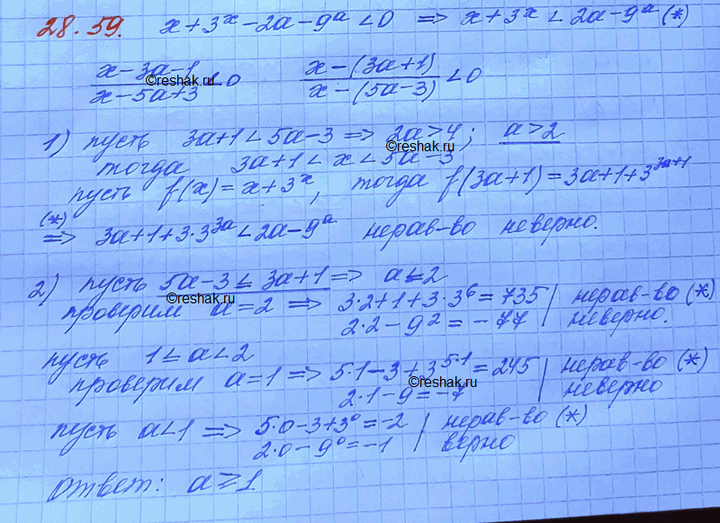 28.59. x+3^x-2a-9^a<0 => x+3^x<2a-9^a (*)
(x-3a-1)/(x-5a+3)<0 (x-(3a+1))/(x-(5a-3))<0
©reshak.ru
1) пусть 3a+1<5a-3 => 2a>4; a>2
©reshak.ru
тогда 3a+1<x<5a-3
пусть f(x)=x+3^x, тогда f(3a+1)=3a+1+3^(3a+1)
(*) => 3a+1+3·3^(3a)<2a-9^a нерав-во неверно.
2) пусть 5a-3≤3a+1 => a≤2
©reshak.ru
проверим a=2 => 3·2+1+3·3^6=735 | нерав-во (*)
2·2-9^2=-77 | неверно.
пусть 1≤a<2
проверим a=1 => 5·1-3+3^(5·1)=245 | нерав-во (*)
©reshak.ru
2·1-9=-7 | неверно
пусть a<1 => 5·0-3+3^0=-2 | нерав-во (*)
2·0-9^0=-1 | верно
Ответ: a≥1